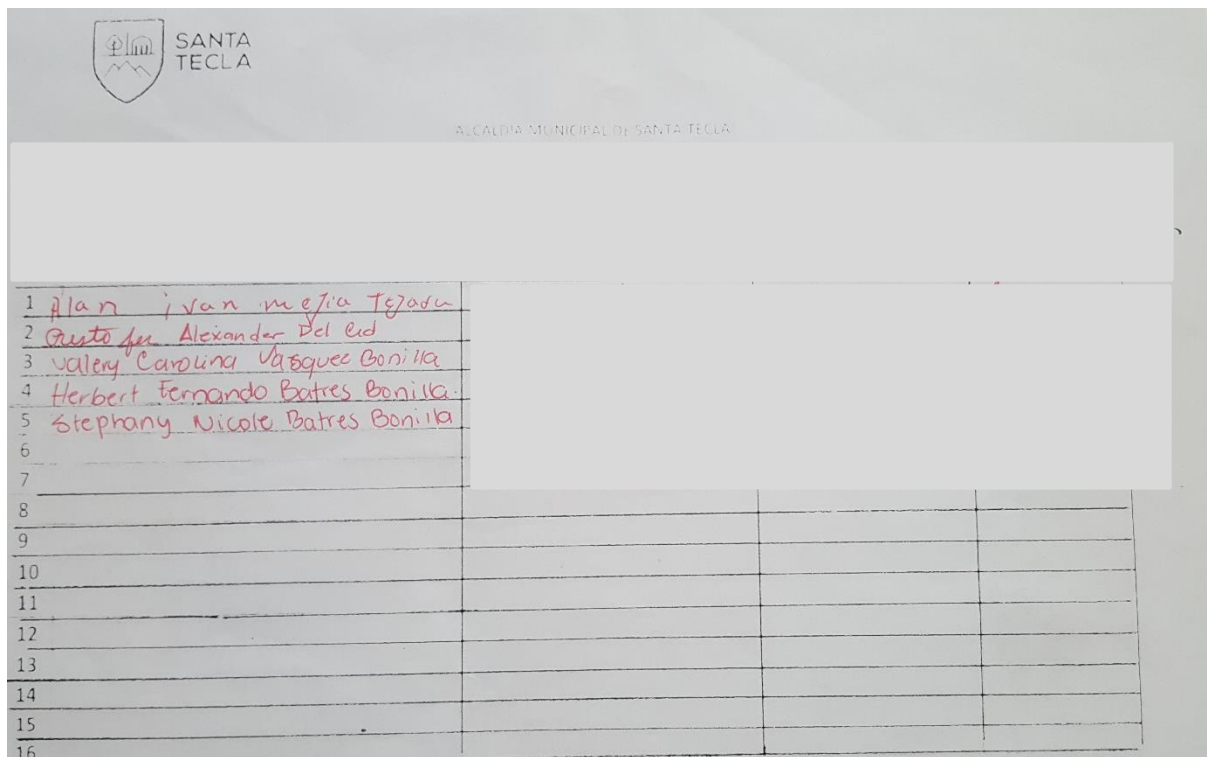 SANTA
TECLA
ALCALDIA MUNICIPAL DE SANTA TECLA
1 Alan ivan mejia Tejada
2 Alexander Del Cid
3 Valery Carolina Vasquez Bonilla
4 Herbert Fernando Batres Bonilla
5 Stephany Nicole Batres Bonilla
6
7
8
9
10
11
12
13
14
15
16